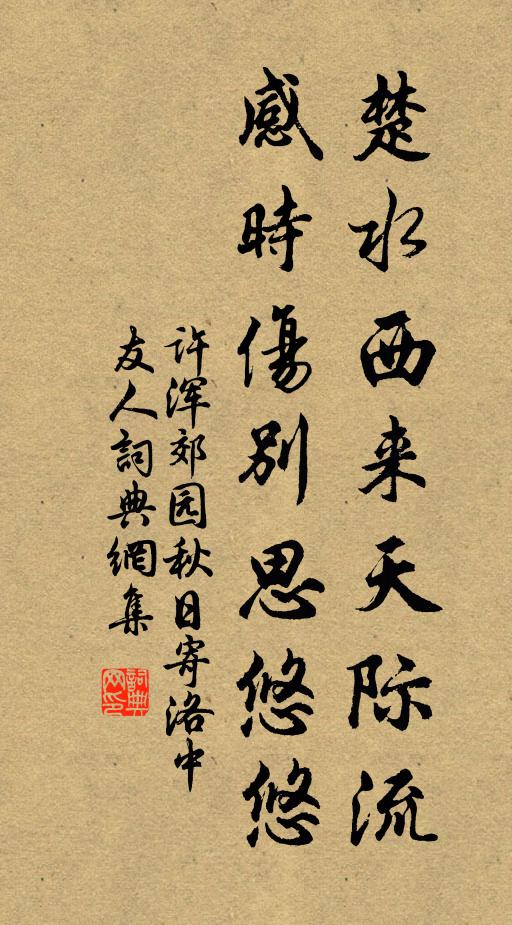 楚水西来天际流
感時傷别思悠悠
许浑郊园秋日寄洛中
友人詞典網集
詞典
网印